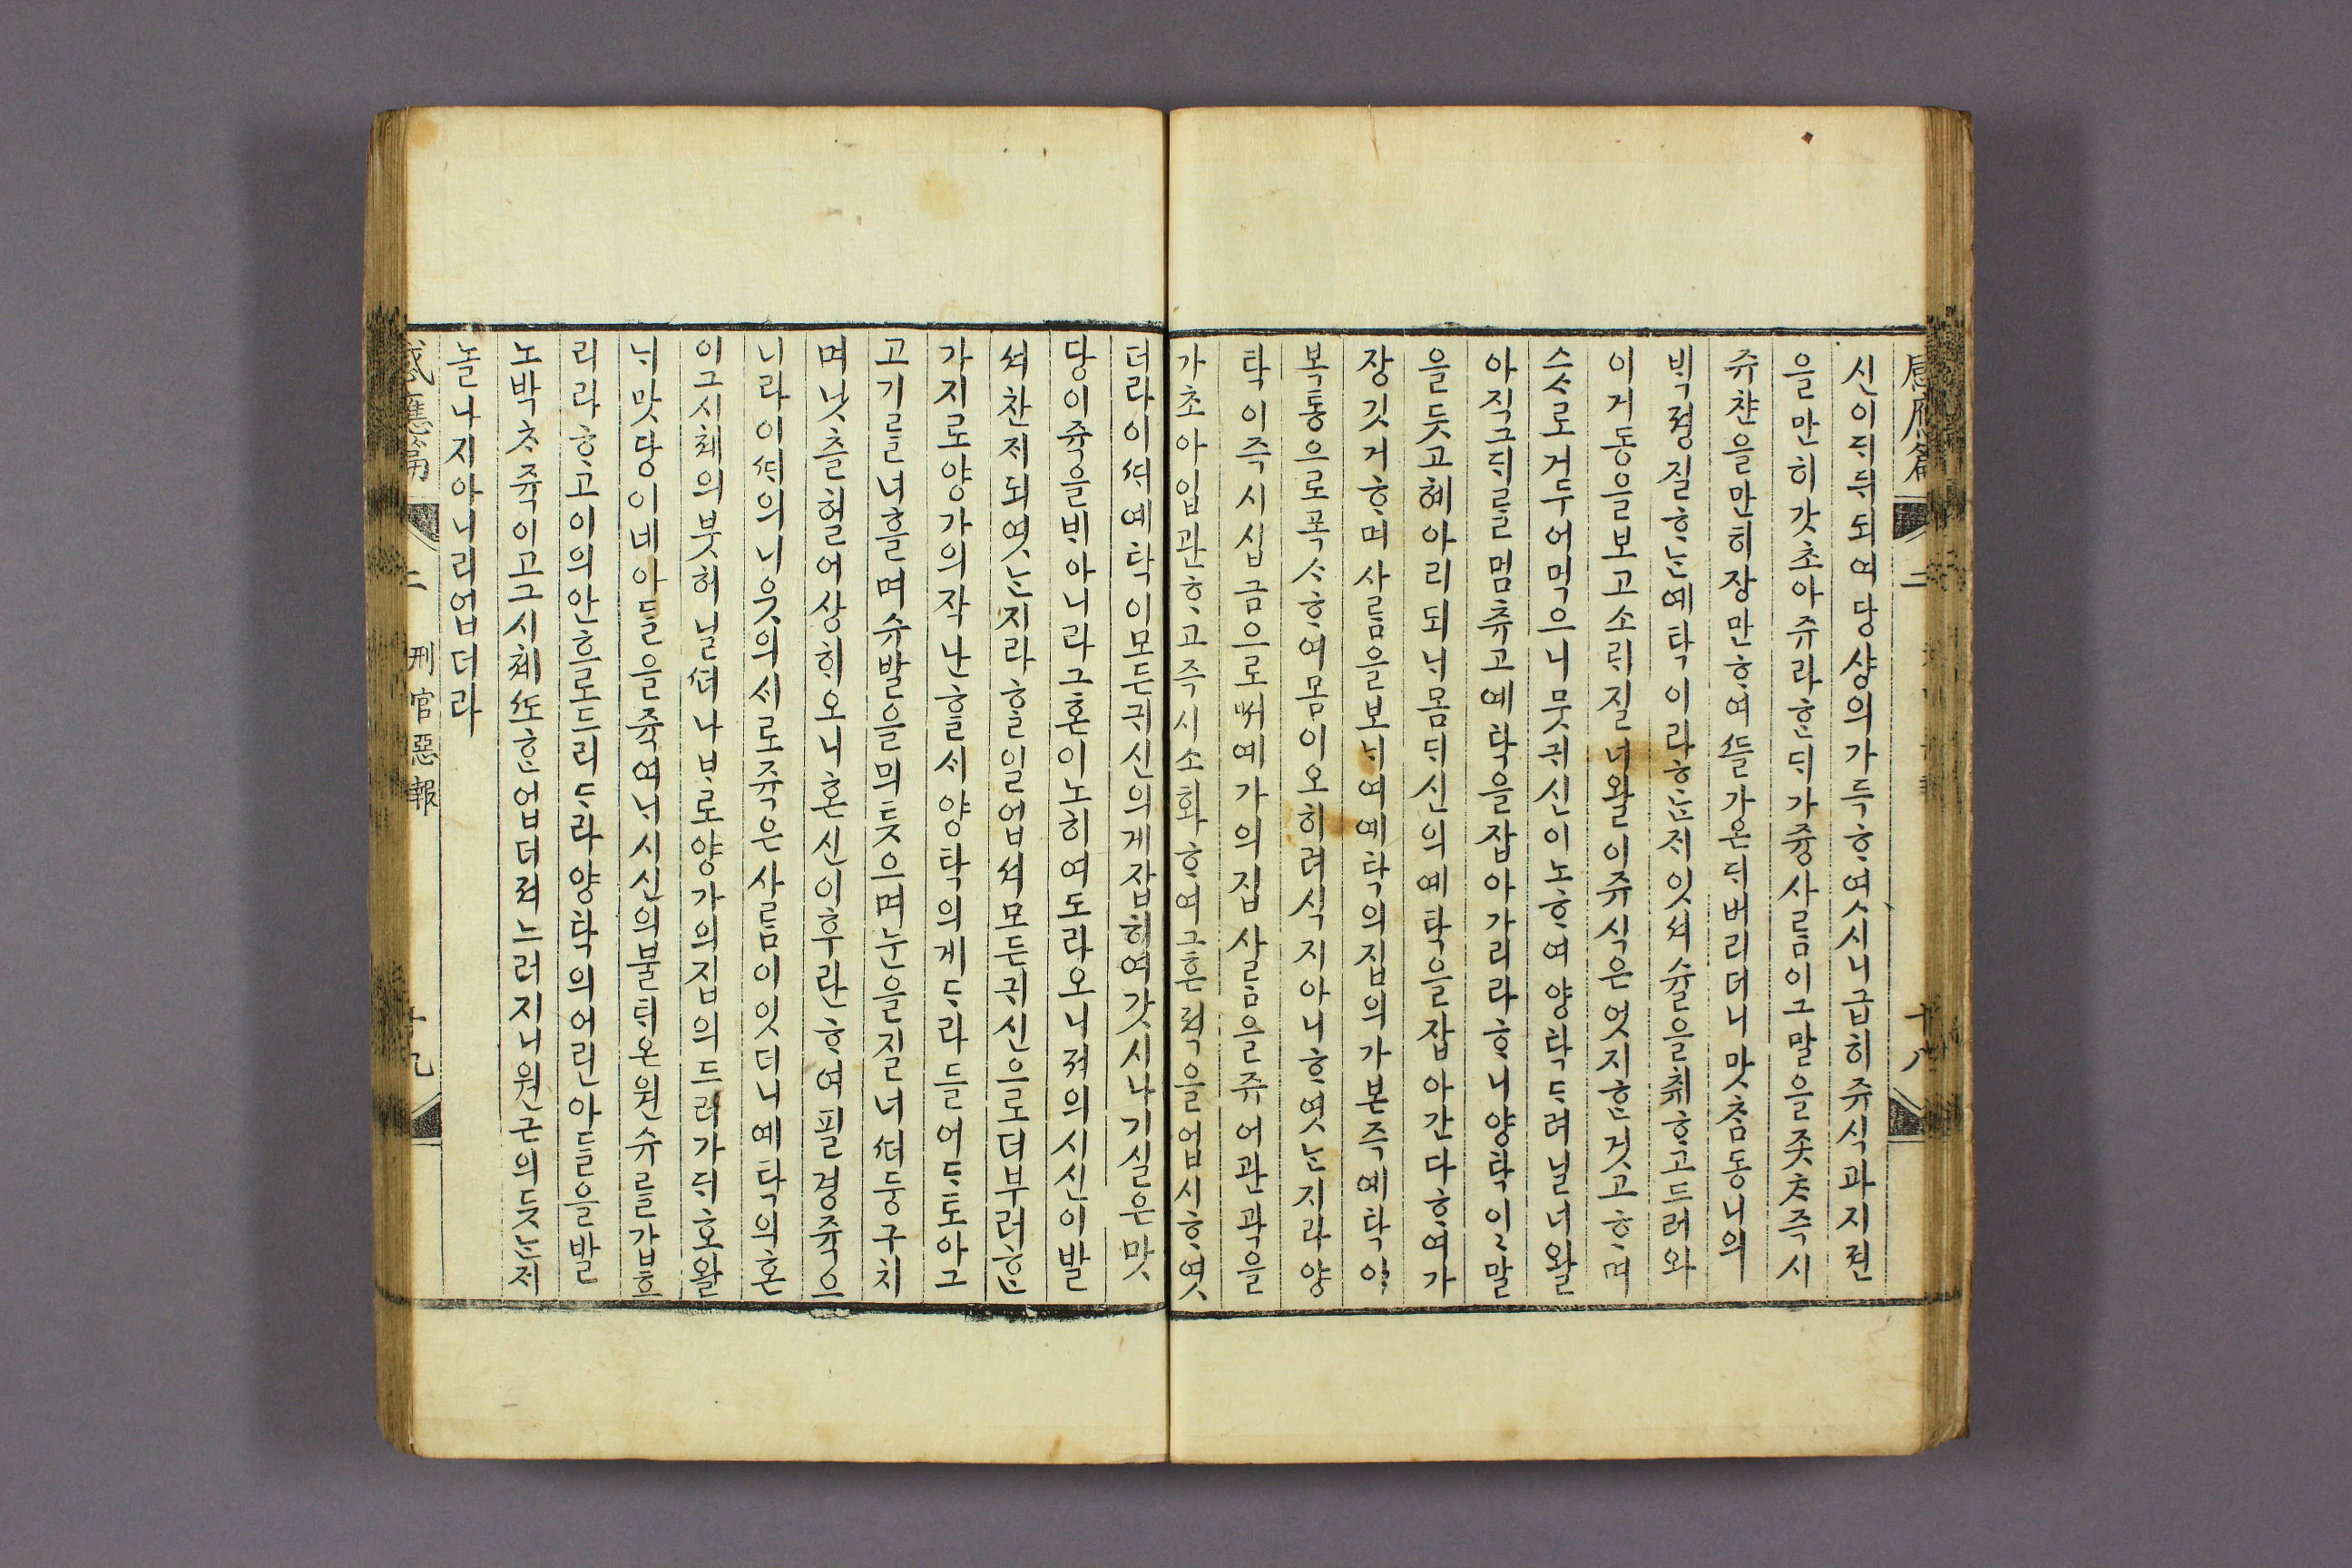 感應篇 二 十八
신이뒤뒤되여당샹의가득ᄒᆞ여시니급히쥬식과지젼
을만히갓초아쥬라ᄒᆞᆫᄃᆡ가즁사ᄅᆞᆷ이그말을좃ᄎᆞ즉시
쥬찬을만히쟝만ᄒᆞ여ᄯᅳᆯ가온ᄃᆡ버리더니맛ᄎᆞᆷ동니의
ᄇᆡᆨ졍질ᄒᆞᄂᆞᆫ예탁이라ᄒᆞᄂᆞᆫ재잇셔슐을취ᄒᆞ고드러와
이거동을보고소ᄅᆡ질너왈이쥬식은엇지ᄒᆞᆫ것고ᄒᆞ며
스ᄉᆞ로거두어먹으니뭇귀신이노ᄒᆞ여양탁ᄃᆞ려닐너왈
아직그ᄃᆡᄅᆞᆯ멈츄고예탁을잡아가리라ᄒᆞ니양탁이이말
을듯고혜아리되ᄂᆡ몸ᄃᆡ신의예탁을잡아간다ᄒᆞ여가
장깃거ᄒᆞ며사ᄅᆞᆷ을보ᄂᆡ여예탁의집의가본즉예탁이
복통으로폭ᄉᆞᄒᆞ여몸이오히려식지아니ᄒᆞ엿ᄂᆞᆫ지라양
탁이즉시십금으로ᄡᅥ예가의집사ᄅᆞᆷ을쥬어관곽을
가초아입관ᄒᆞ고즉시소화ᄒᆞ여그흔젹을업시ᄒᆞ엿
더라이ᄯᆡ예탁이모든귀신의게잡히여갓시나기실은맛
당이쥭을ᄇᆡ아니라그혼이노히여도라오니져의시신이발
셔찬ᄌᆡ되엿ᄂᆞᆫ지라ᄒᆞᆯ일업셔모든귀신으로더부러ᄒᆞᆫ
가지로양가의작난ᄒᆞᆯᄉᆡ양탁의게ᄃᆞ라들어도토아그
고기ᄅᆞᆯ너흘며슈발을믜ᄯᅳ으며눈을질너ᄯᅥ둥구치
며낫츨헐어상히오니혼신이후란ᄒᆞ여필경쥭으
니라이ᄯᆡ의니웃의새로쥭은사ᄅᆞᆷ이잇더니예탁의혼
이그시체의붓허닐ᄯᅥ나ᄇᆞ로양가의집의드러가ᄃᆡ호왈
ᄂᆡ맛당이네아ᄃᆞᆯ을쥭여ᄂᆡ시신의불ᄐᆡ온원슈ᄅᆞᆯ갑흐
리라ᄒᆞ고이의안흐로드리ᄃᆞ라양탁의어린아ᄃᆞᆯ을발
노박ᄎᆞ쥭이고그시체ᄯᅩᄒᆞᆫ업더져느러지니원근의듯ᄂᆞᆫ재
놀나지아니리업더라
感應篇 二 刑官惡報 十九